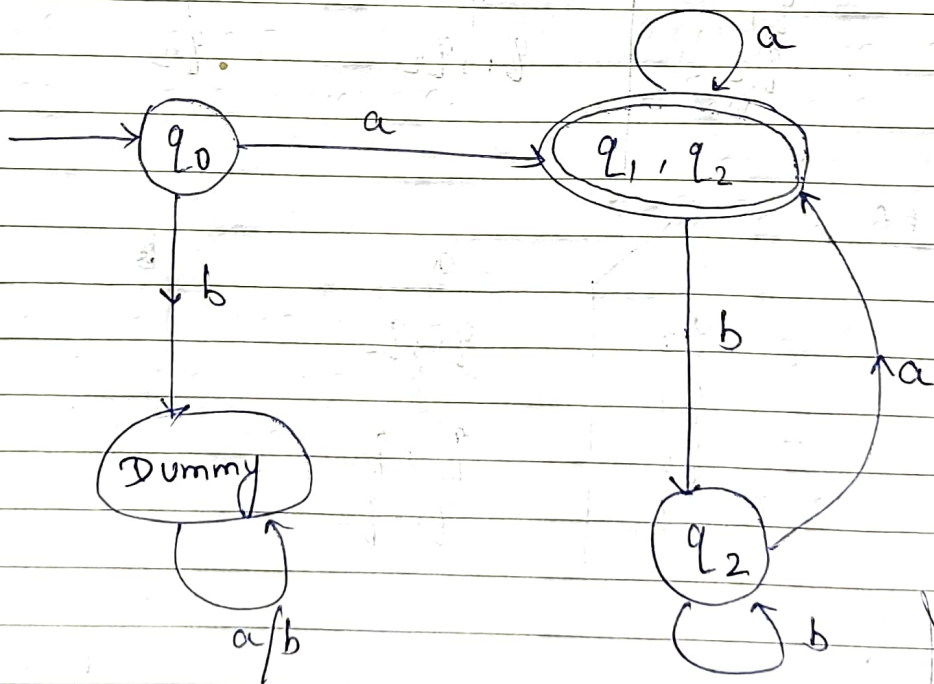 a
q0 a q1, q2
b
b
a
Dummy
q2
a/b
b